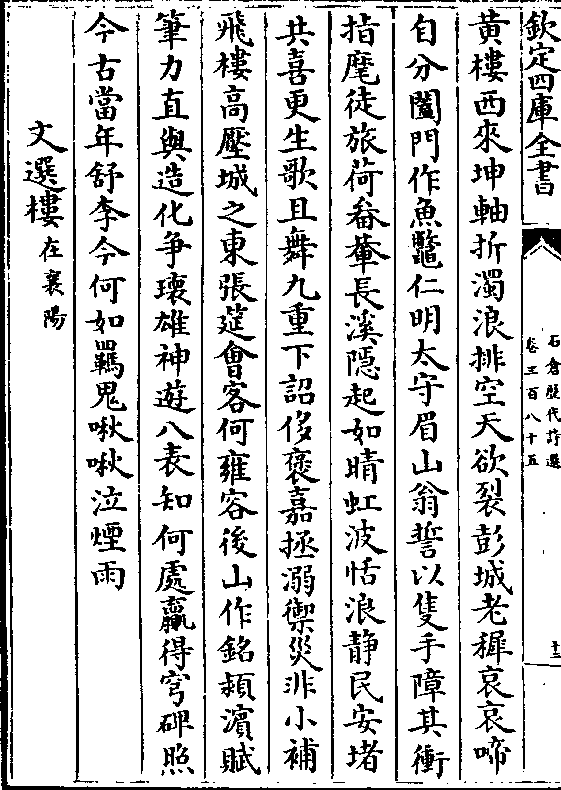 欽定四庫全書
石倉歷代詩選
卷三百八十五
十二
黃樓西來坤軸折濁浪排空天欲裂彭城老穉哀哀啼
自分闔門作魚鼈仁明太守眉山翁誓以隻手障其衝
指麾徒旅荷畚藁長溪隱起如晴虹波恬浪静民安堵
共喜更生歌且舞九重下詔侈褒嘉拯溺禦災非小補
飛樓高壓城之東張筵會客何雍容後山作銘潁濵賦
筆力直與造化争瓌雄神遊八表知何處贏得穹碑照
今古當年舒李今何如羇鬼啾啾泣煙雨
文選樓在襄陽